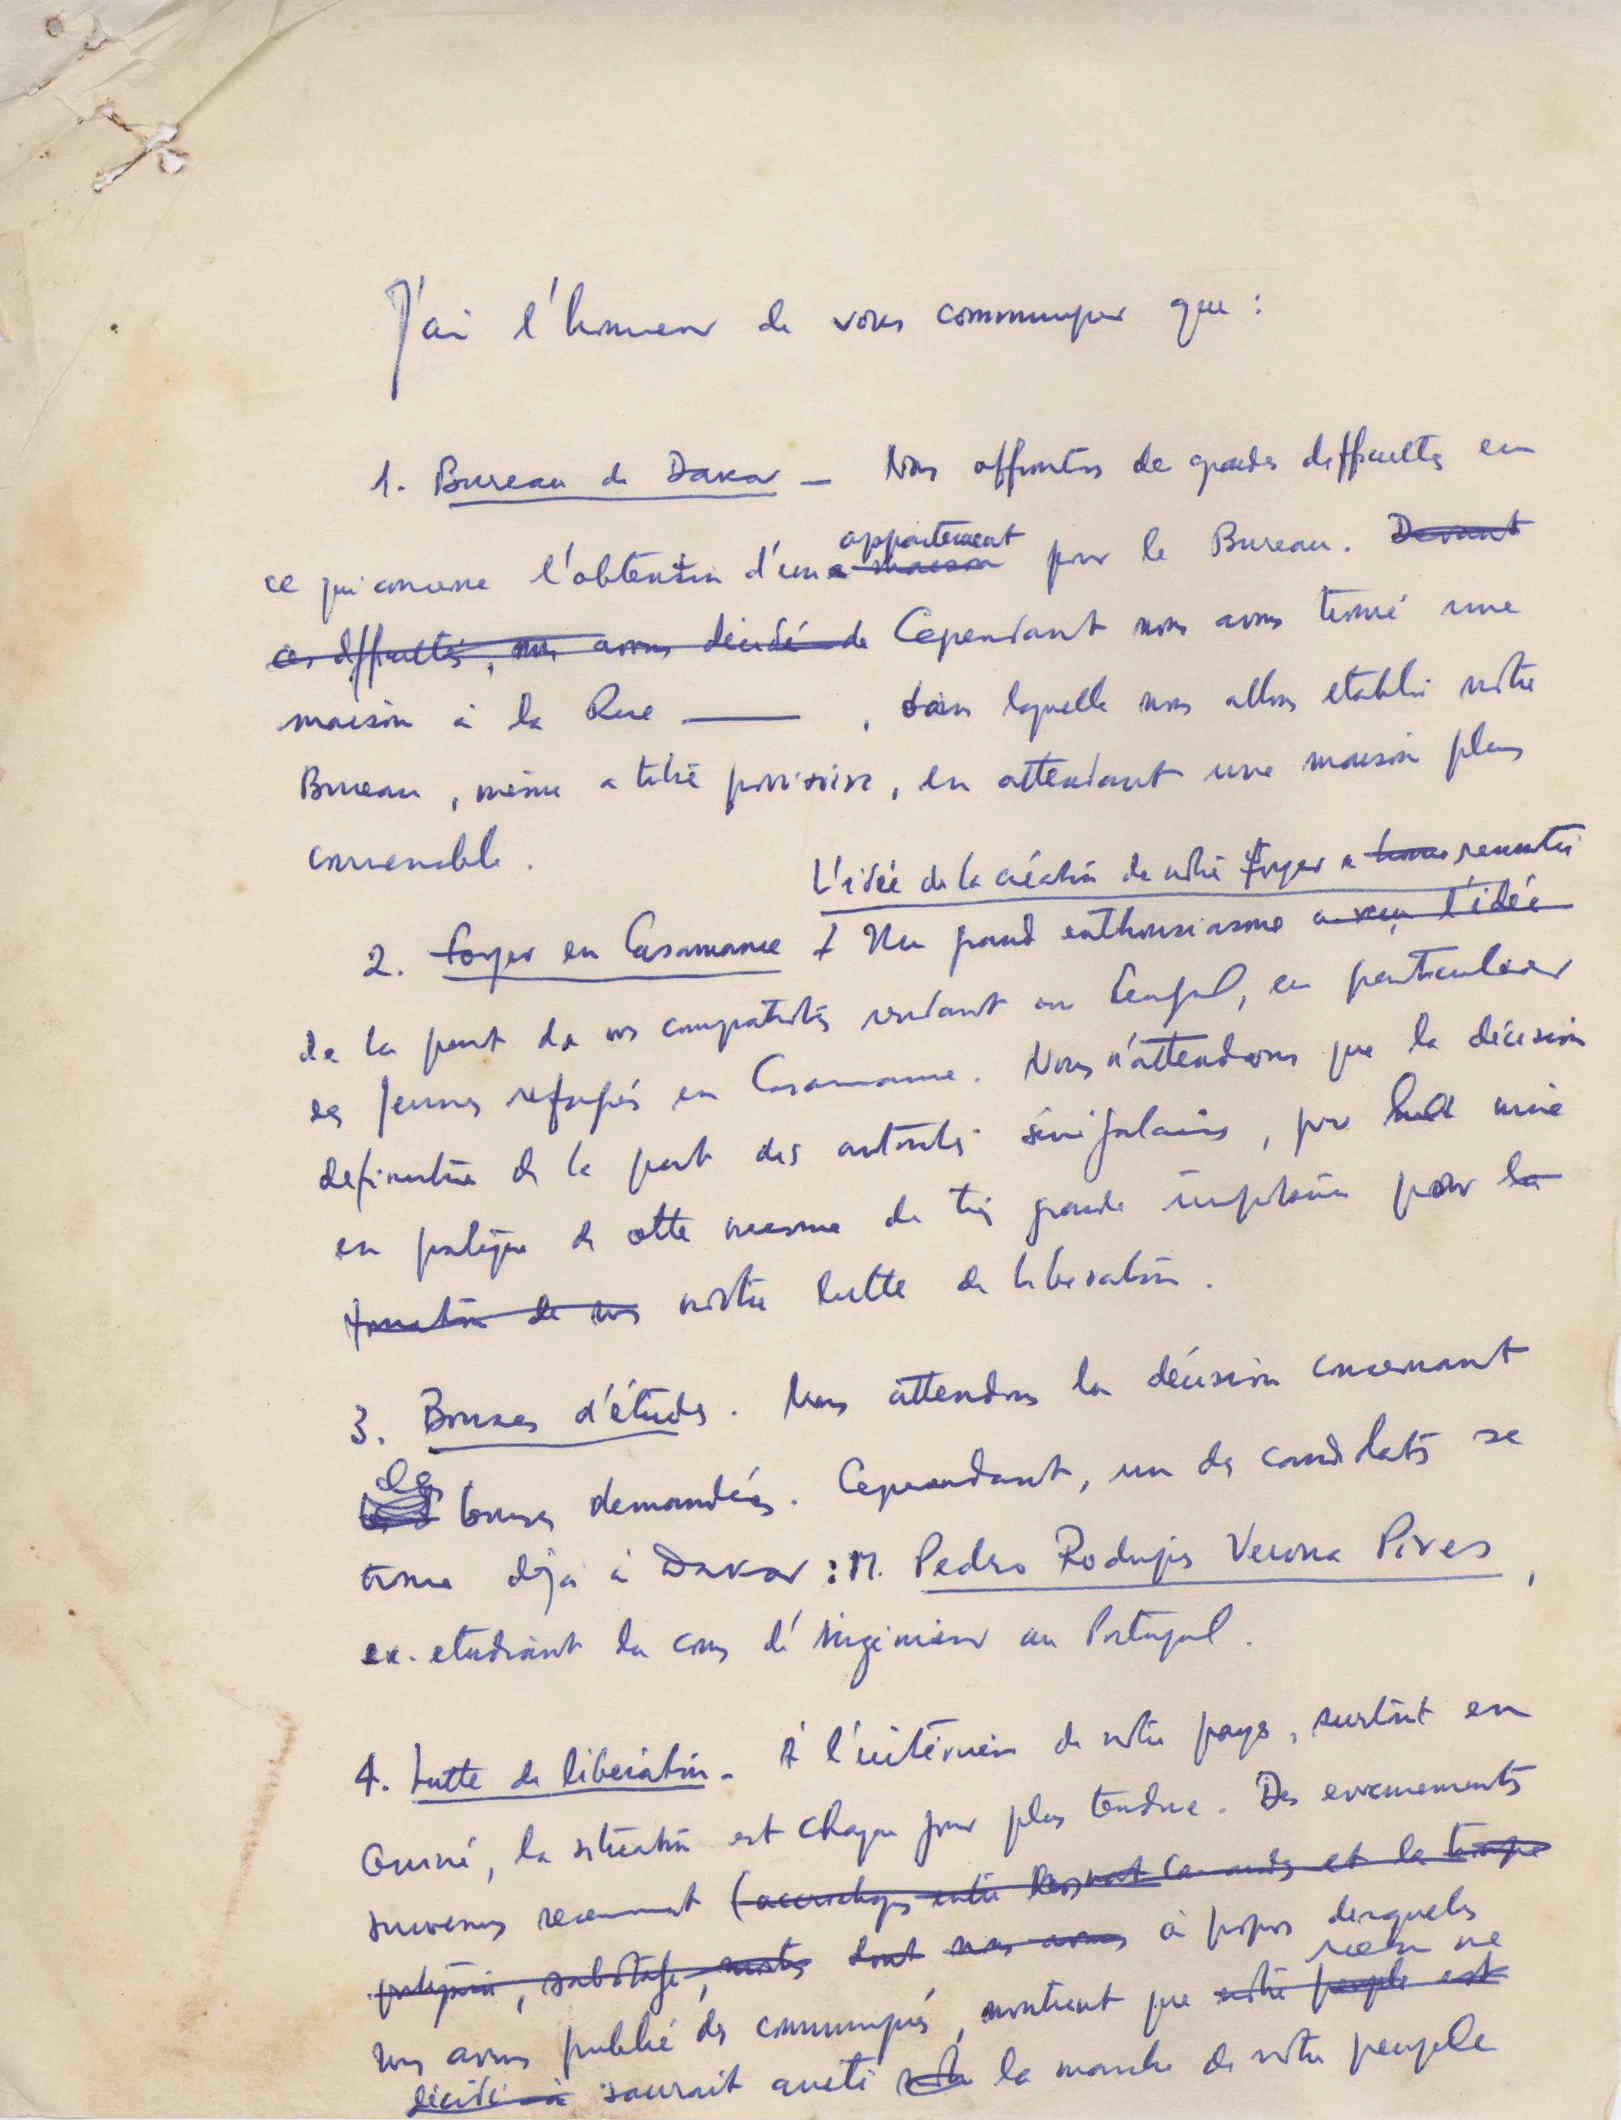 J'ai l'honneur de vous communiquer que :
1. Bureau de Dakar – Nous affrontons de grandes difficultés en
appartement
ce qui concerne l'obtention d'une maison pour le Bureau. Devant
ces difficultés, nous avons décidé de Cependant nous avons trouvé une
maison à la Rue ——— , dans laquelle nous allons etablir notre
Bureau, même a titre provisoire, en attendant une maison plus
convenable.
L'idée de la création de notre foyer a rencontré
2. Foyer en Casamance Un grand enthousiasme a reçu l'idée
de la part de nos compatriotes résidant au Sénégal, en particulier
des jeunes refugiés en Casamance. Nous n'attendons que la décision
definitive de la part des autorités sénégalaises, pour la mise
en pratique de cette mesure de très grande importance pour la
formation de nos notre lutte de liberation.
3. Bourses d'études. Nous attendons la décision concernant
des
bourses demandées. Cependant, un des candidats se
trouve déjà à Dakar : M. Pedro Rodrigues Verona Pires,
ex. etudiant du cours d'ingénieur au Portugal.
4. Lutte de libération – À l'intérieur de notre pays, surtout en
Guiné, la situation est chaque jour plus tendue. Des evenements
survenus recemment (accrochages entre les et la troupe
portugaise, sabotage, dont nous avons à propos desquels
rien ne
nous avons publié des communiqués, montrent que notre peuple est
décidé à saurait arrêté la marche de notre peuple